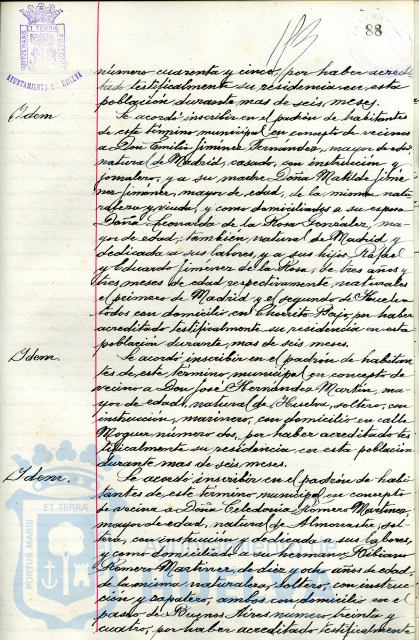 88
PORTUS MARIS ET TERRÆ CUSTODIA
AYUNTAMIENTO DE HUELVA
número cuarenta y cinco, por haber acredi
tado testificalmente su residencia en esta
población durante mas de seis meses.
Idem
Se acordó inscribir en el padrón de habitantes
de este término municipal en concepto de vecinos
a Don Emilio Jiménez Fernández, mayor de edad
natural de Madrid, casado, con instrucción y
jornalero, y a su madre Doña Matilde Jimé
nez Jiménez, mayor de edad, de la misma natu
raleza y viuda, y como domiciliados a su esposa
Doña Leonarda de la Rosa González, ma
yor de edad, también natural de Madrid y
dedicada a sus labores, y a sus hijos Rafael
y Eduardo Jiménez de la Rosa, de tres años y
tres meses de edad respectivamente, naturales
el primero de Madrid y el segundo de Huelva
todos con domicilio en Chorrito Bajo, por haber
acreditado testificalmente su residencia en esta
población durante mas de seis meses.
Idem.
Se acordó inscribir en el padrón de habitan
tes de este término municipal en concepto de
vecino a Don José Hernández Martín, ma
yor de edad, natural de Huelva, soltero, con
instrucción, marinero, con domicilio en calle
Moguer número dos, por haber acreditado tes
tificalmente su residencia en esta población
durante mas de seis meses.
Idem.
Se acordó inscribir en el padrón de habi
tantes de este término municipal en concepto
de vecina a Doña Celedonia Romero Martínez,
mayor de edad, natural de Almonaster, sol
tera, con instrucción y dedicada a sus labores,
y como domiciliado a su
Romero Martínez de diez y ocho años de edad,
de la misma naturaleza, soltero, con instruc
ción y zapatero, ambos con domicilio en el
paseo de Buenos Aires número treinta y
cuatro, por haber acreditado testificalmente
PORTUS MARIS ET TERRA
Ayuntamiento de
HUELVA